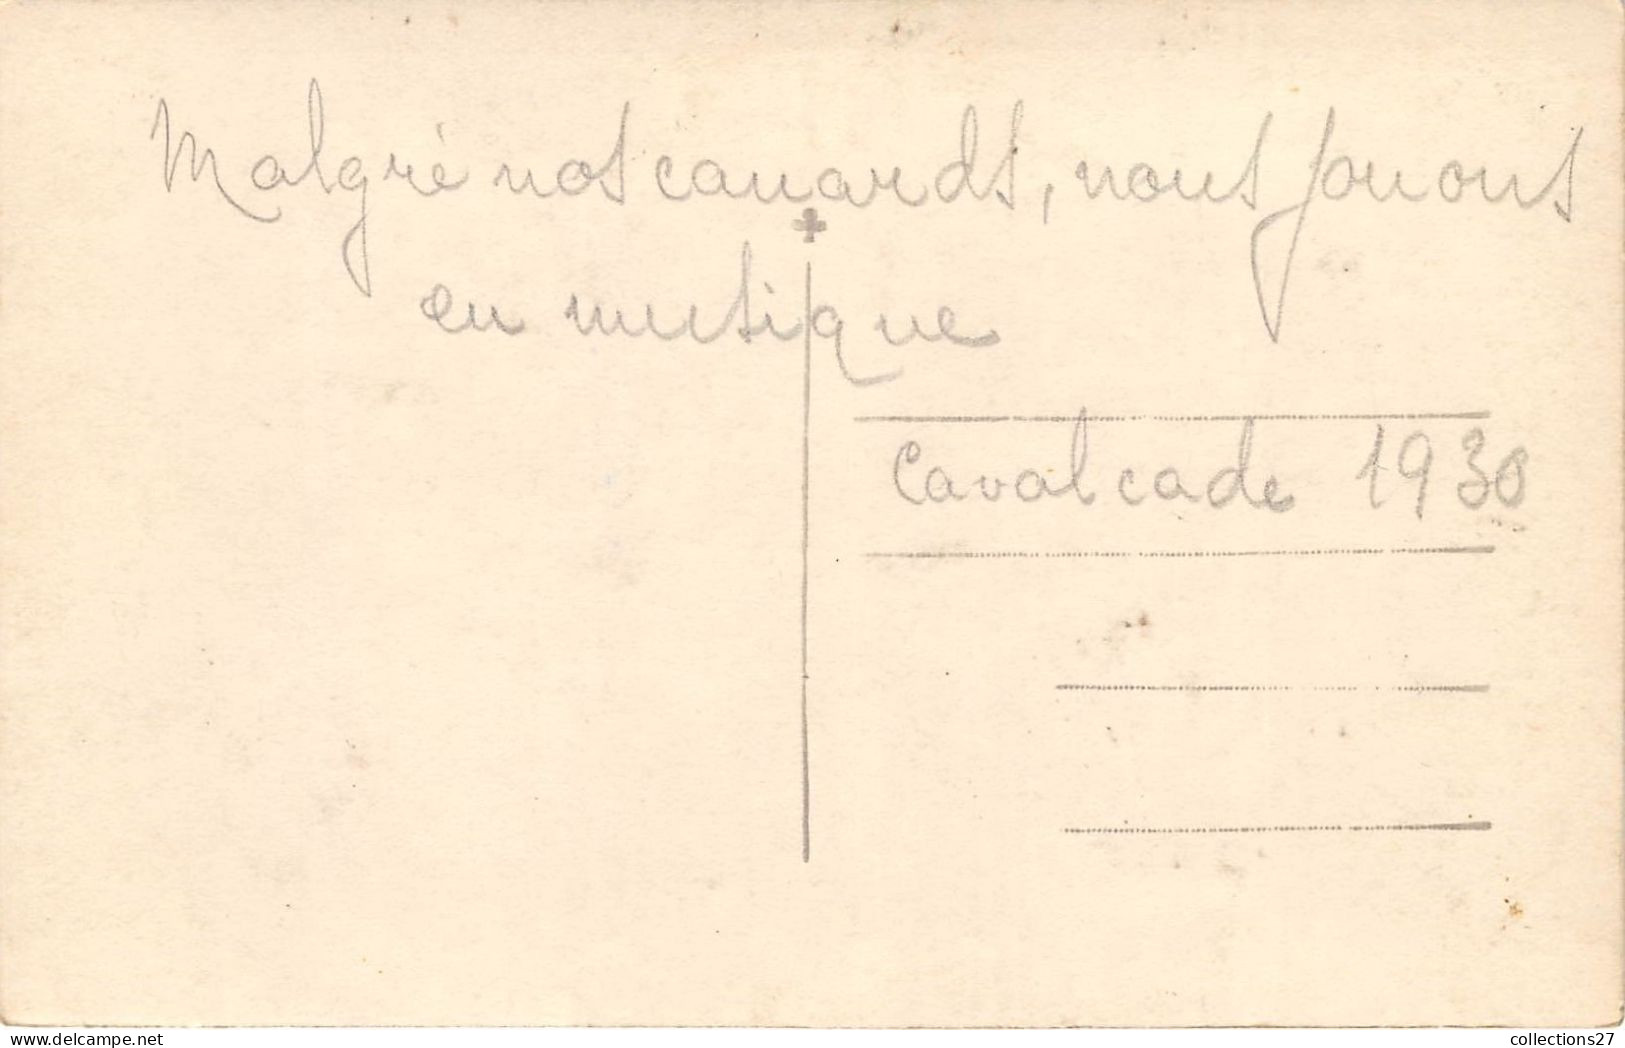 Malgré nos canards, nous jouons
en musique
Cavalcade 1930
collections27